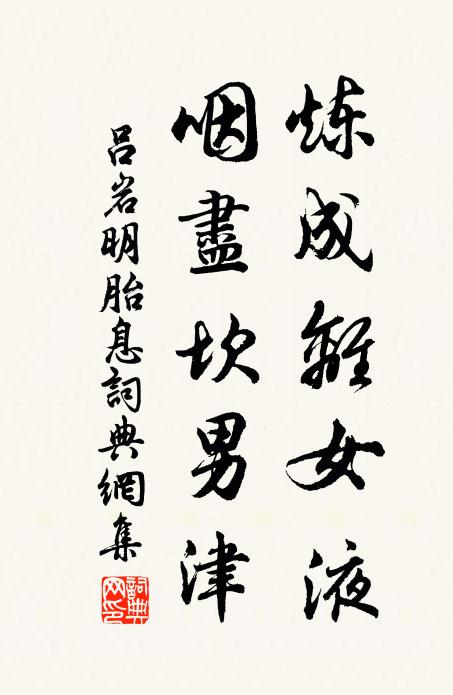 炼成離女液
咽盡坎男津
吕岩明胎息詞典網集
詞典网印